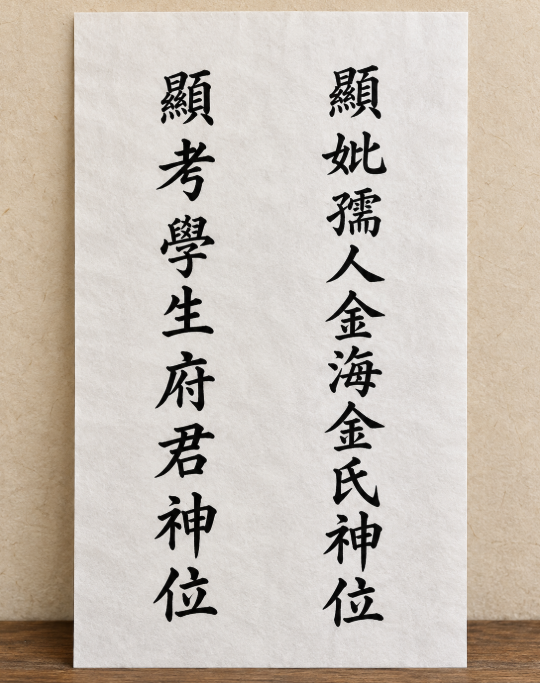 顯妣孺人金海金氏神位
顯考學生府君神位